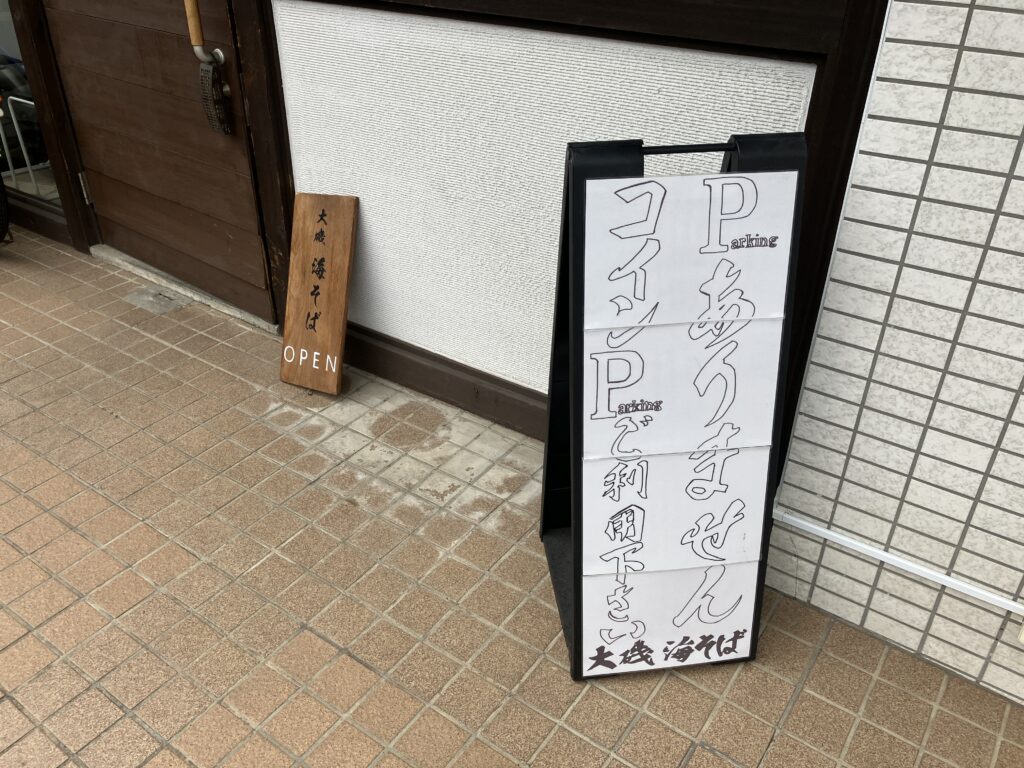 大磯 海そば
OPEN
Parking ありません
コインParking ご利用下さい
大磯 海そば